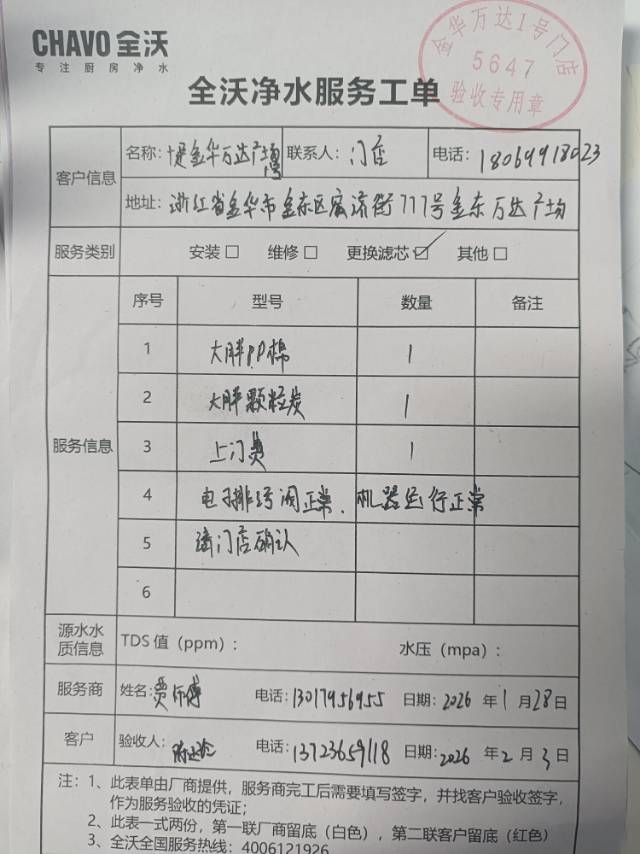 CHAVO 全沃
专注厨房净水
金华万达1号门店
5647
验收专用章
全沃净水服务工单
客户信息
名称: 金华万达广场店
联系人: 门店
电话: 18069918023
地址: 浙江省金华市金东区宏济街777号金东万达广场
服务类别 安装□ 维修□ 更换滤芯☑ 其他□
服务信息
序号 型号 数量 备注
1 大胖PP棉 1
2 大胖颗粒炭 1
3 上门费 1
4 电子排污阀正常、机器运行正常
5 请门店确认
6
源水水质信息 TDS 值（ppm）: 水压（mpa）:
服务商 姓名: 贾师傅 电话: 13017956955 日期: 2026 年 1 月 28 日
客户 验收人: 电话: 13723659118 日期: 2026 年 2 月 3 日
注: 1、此表单由厂商提供，服务商完工后需要填写签字，并找客户验收签字，
作为服务验收的凭证;
2、此表一式两份，第一联厂商留底（白色），第二联客户留底（红色）
3、全沃全国服务热线: 4006121926